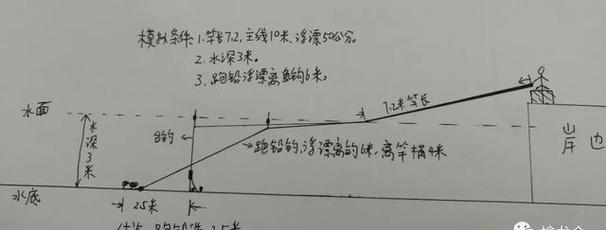 模拟条件: 1. 竿长7.2, 主线10米, 浮漂50公分。
2. 水深3米。
3. 跑铅浮漂离鱼钩6米。
7.2米竿长
水面
水深3米
台钓
跑铅钓,浮漂离钩6米,离竿梢4米
岸边
水底
2.5米